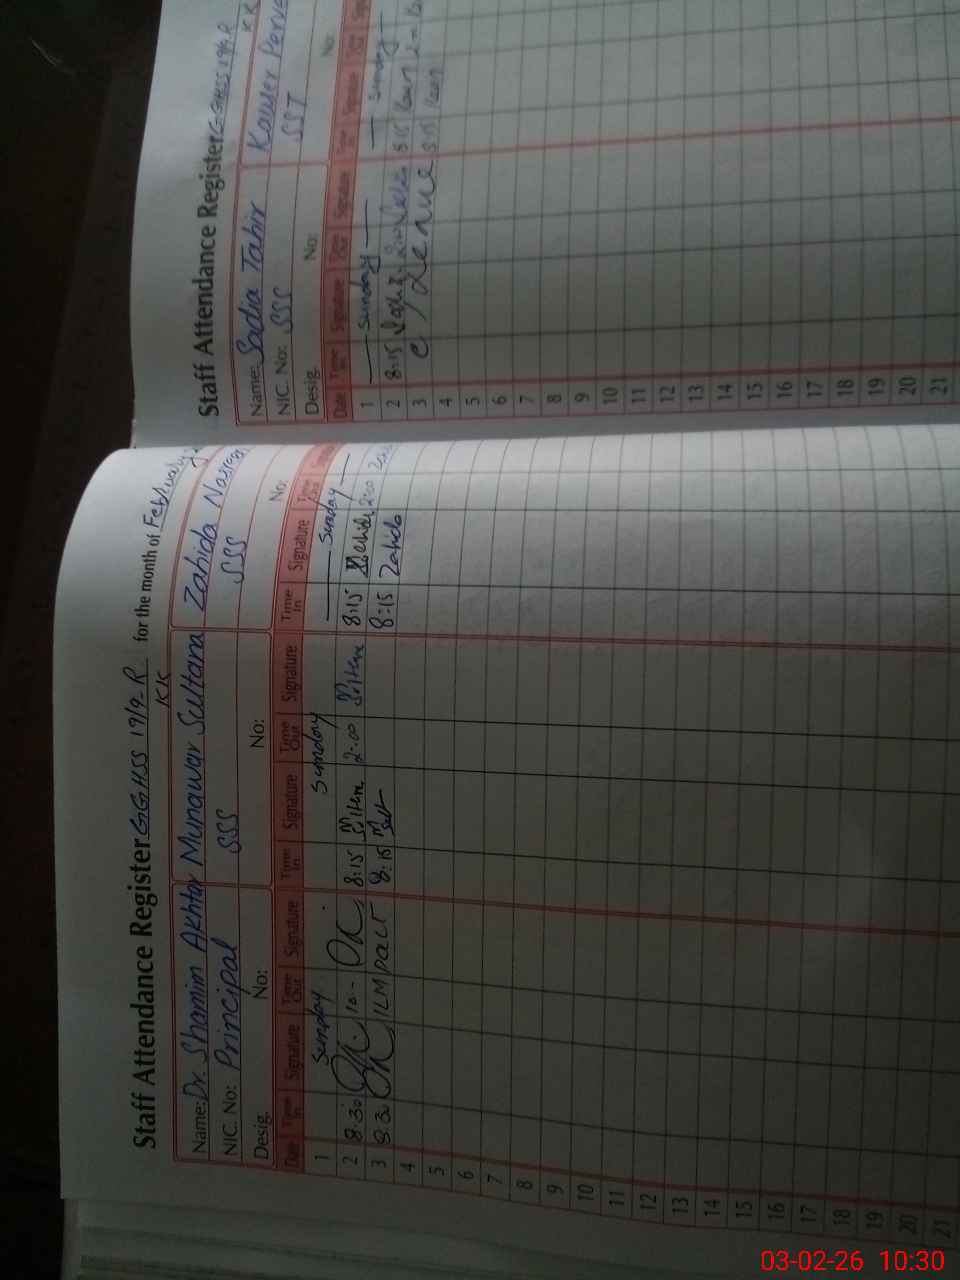 Staff Attendance Register GGHSS 17/9-R for the month of February
KK
Name: Dr. Shamim Akhtar Munawar Sultana Zahida
NIC. No: Principal SSS SSS
Desig. No: No: No:
Date Time In Signature Time Out Signature Time In Signature Time Out Signature Time In Signature Time Out
1 Sunday Sunday Sunday
2 8:30 8:15 2:00 8:15 2:00
3 8:30 8:15 8:15 Zahida
4
5
6
7
8
9
10
11
12
13
14
15
16
17
18
19
20
21
Staff Attendance Register GGHSS 19/9-R
KK
Name: Sadia Tahir Kauser
NIC. No: SSS SST
Desig. No: No:
Date Time In Signature Time Out Signature Time In Signature Time Out
1 Sunday Sunday
2 8:15 8:15
3 C/Leave 8:15
4
5
6
7
8
9
10
11
12
13
14
15
16
17
18
19
20
21
03-02-26 10:30